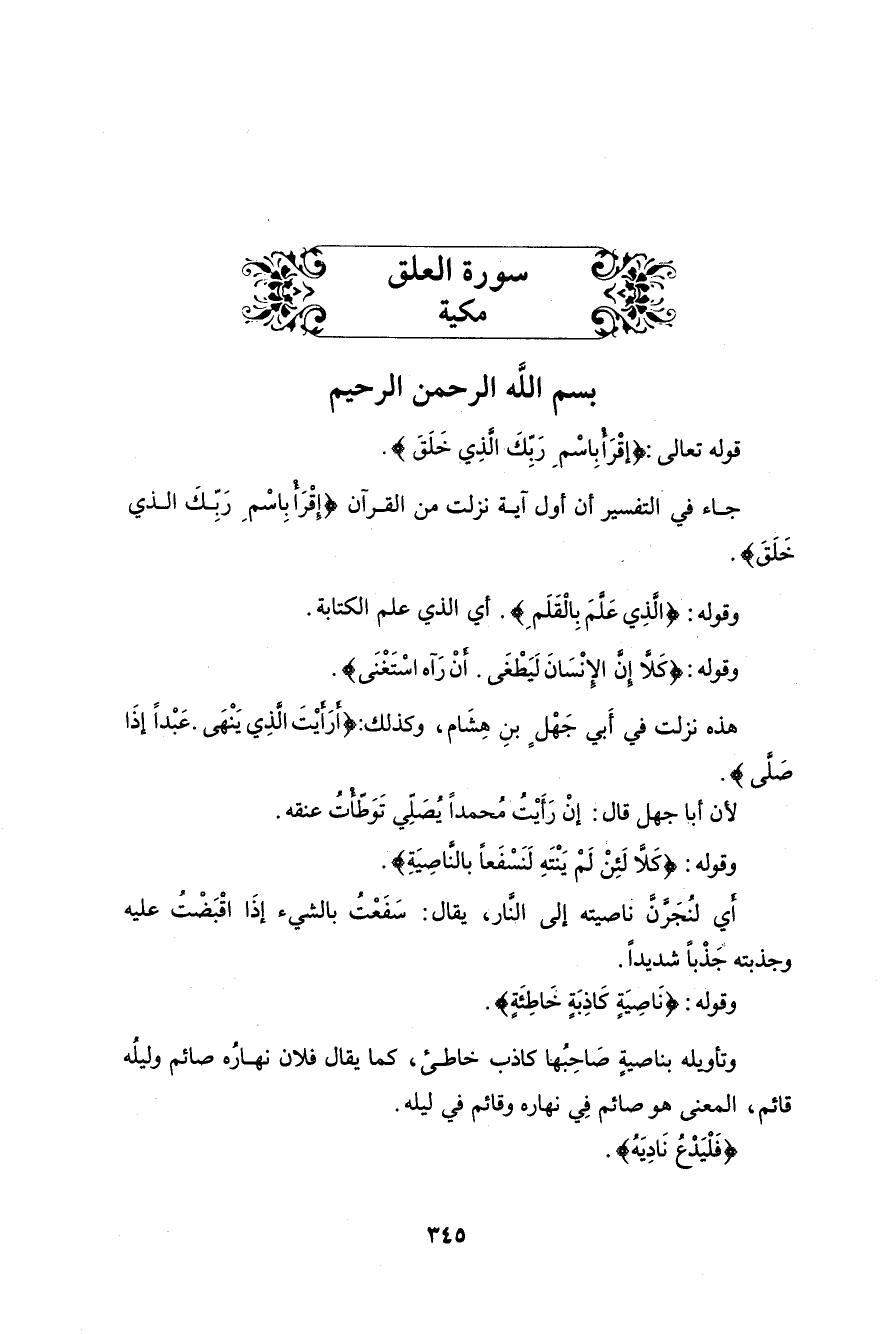 سورة العلق
مكية
بسم اللَّه الرحمن الرحيم
قوله تعالى :﴿إقْرَأْ بِاسْمِ رَبِّكَ الَّذِي خَلَقَ ﴾.
جـاء في التفسير أن أول آيـة نزلت من القـرآن ﴿إقْرَأْ بِاسْمِ رَبِّـكَ الـذي
خَلَقَ﴾.
وقوله: ﴿الَّذِي عَلَّمَ بِالْقَلَمِ ﴾. أي الذي علم الكتابة.
وقوله: ﴿كَلَّا إِنَّ الإِنْسَانَ لَيَطْغَى . أَنْ رَآه اسْتَغْنَى﴾.
هذه نزلت في أَبي جَهْلٍ بنِ هِشَام، وكذلك:﴿أَرَأَيْتَ الَّذِي يَنْهَى .عَبْداً إذَا
صَلَّى ﴾.
لأن أبا جهل قال: إنْ رَأَيْتُ مُحمداً يُصَلِّي تَوَطَّأْتُ عنقه.
وقوله: ﴿كَلَّا لَئِنْ لَمْ يَنْتَهِ لَنَسْفَعاً بالنَّاصِيَةِ﴾.
أَي لنُجَرَّنَّ ناصيته إلى النَّار، يقال: سَفَعْتُ بالشيء إذَا اقْبَضْتُ عليه
وجذبته جَذْباً شديداً.
وقوله: ﴿نَاصِيَةٍ كَاذِبَةٍ خَاطِئَةٍ﴾.
وتأويله بناصيةٍ صَاحِبُها كاذب خاطـئ، كما يقال فلان نهـارُه صائم وليلُه
قائم، المعنى هو صائم فِي نهاره وقائم في ليله.
﴿فَلْيَدْعُ نَادِيَهُ﴾.
٣٤٥